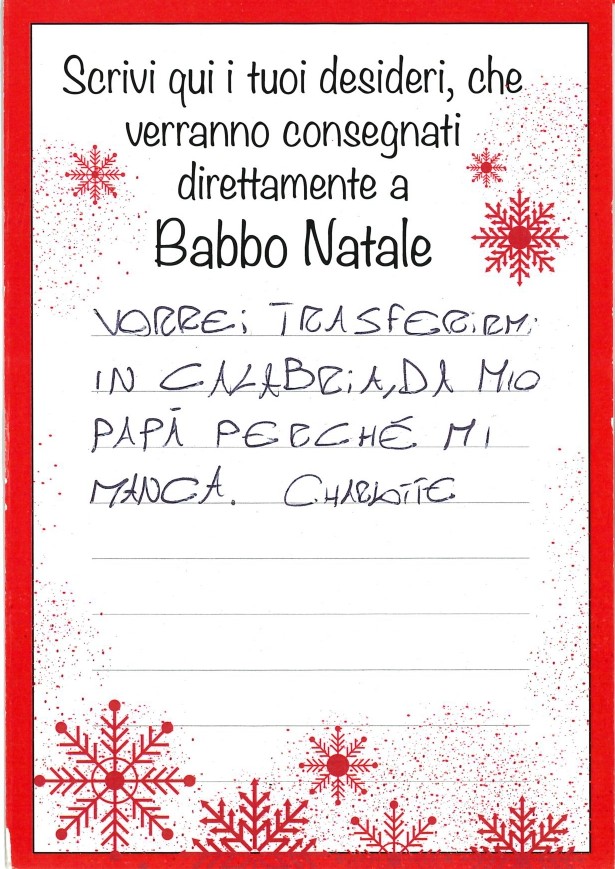 Scrivi qui i tuoi desideri, che
verranno consegnati
direttamente a
Babbo Natale
VORREi TRASFERiRMi
IN CALABRiA, DA MIO
PAPÀ PERCHÉ MI
MANCA. CHARLOTTE